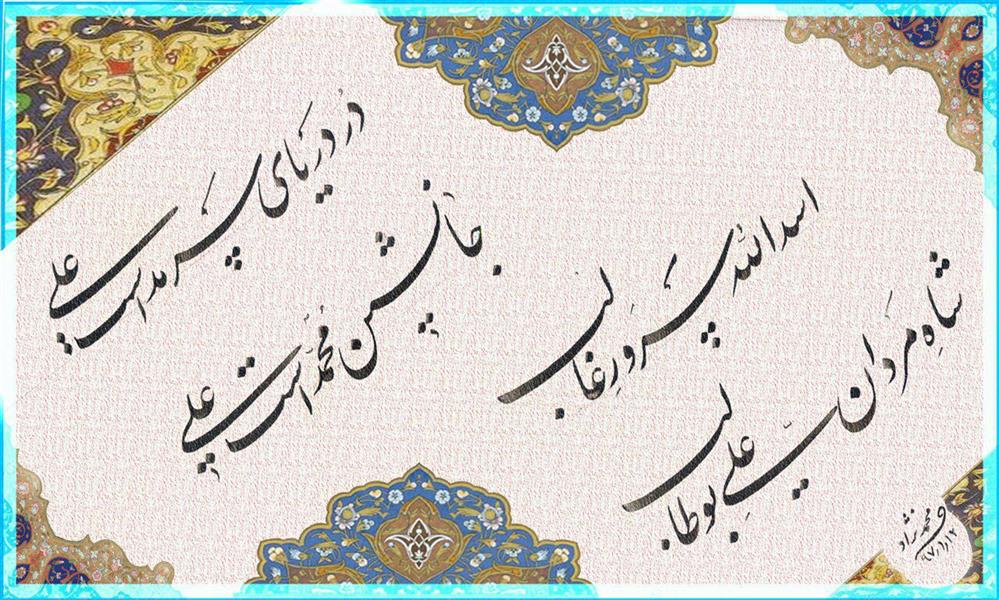 اسدالله سرورِ غالب
شاهِ مردان علیِ بوطالب
دُر دریای سرمد است علی
جانشین محمّد است علی
محمدنژاد
۹۷،۱،۱۲